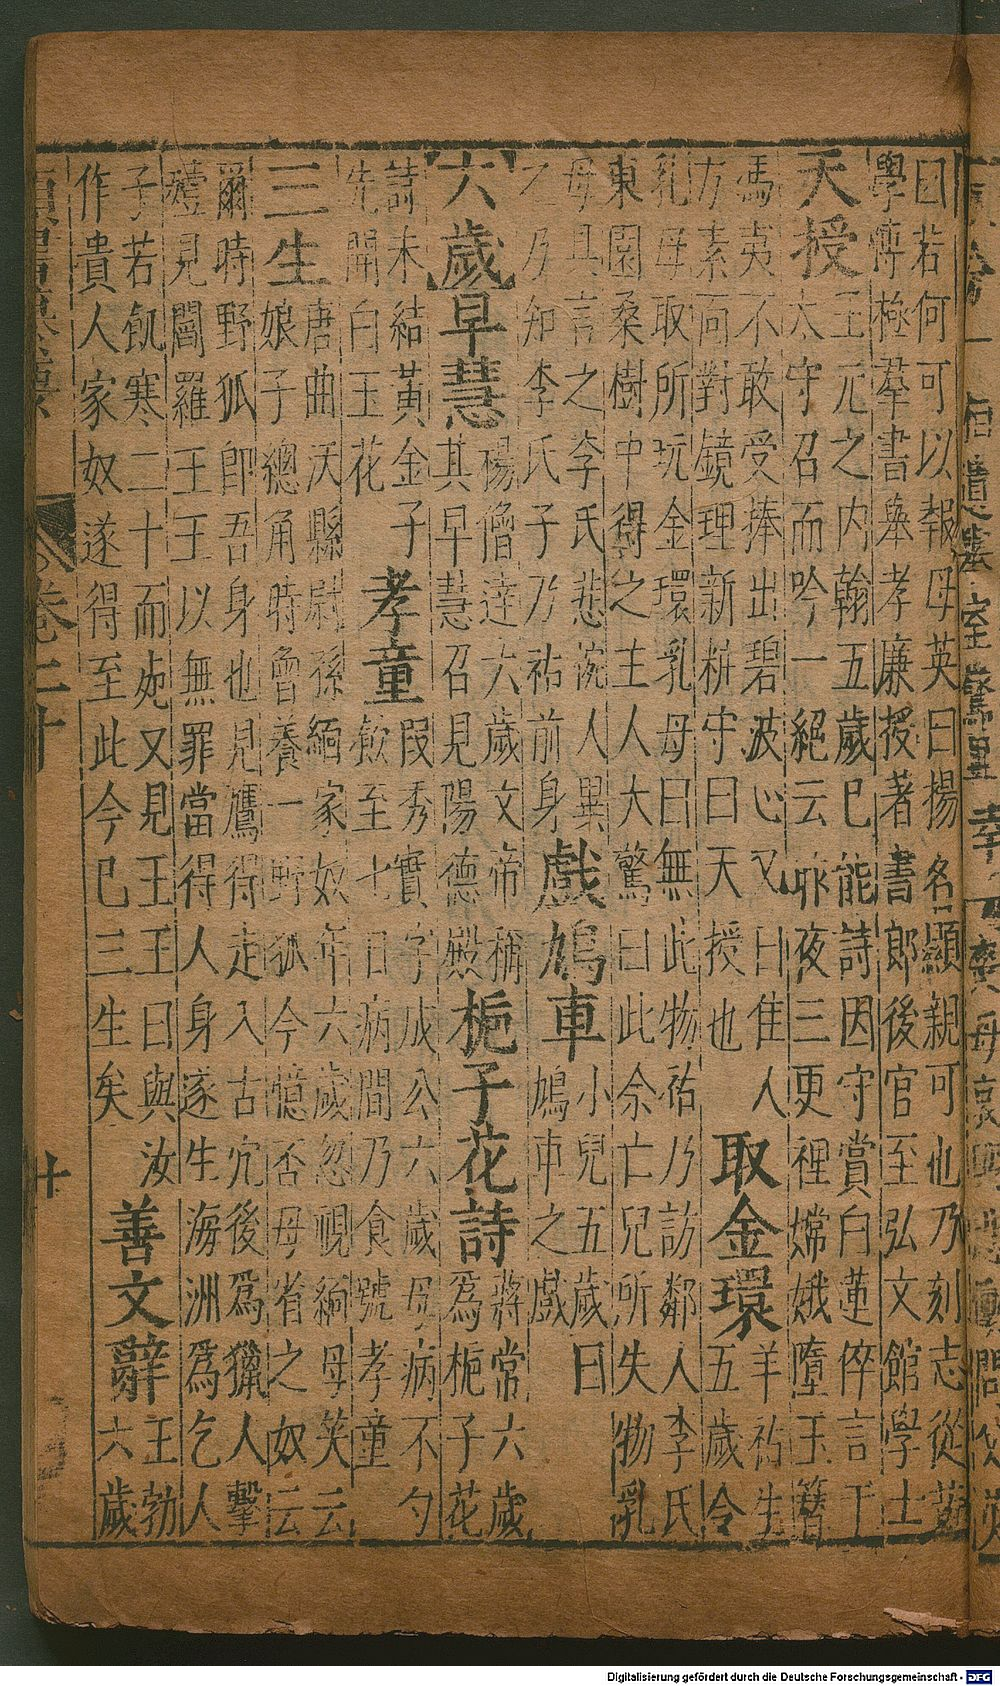 曰若何可以報母英曰揚名顯親可也乃刻志從
學慱極羣書舉孝廉授著書郎後官至弘文館學士
天授
王元之內翰五歲巳能詩因守賞白蓮倅言于
太守召而吟一絕云昨夜三更裡嫦娥墮玉簪
馮夷不敢受捧出碧波心又曰隹人
方素面對鏡理新粧守曰天授也
取金環
羊祐生
五歲令
乳母取所玩金環乳母曰無此物祐乃訪鄰人李氏
東園桑樹中得之主人大驚曰此余亡兒所失物乳
母具言之李氏悲惋人異
之乃知李氏子乃祐前身
戲鳩車
小兒五歲曰
鳩車之戲
六歲早慧
楊僧達六歲文帝稱
其早慧召見陽德殿
梔子花詩
蔣常六歲
爲梔子花
詩未結黃金子
先開白玉花
孝童
叚秀實字成公六歲母病不勺
飲至七日病間乃食號孝童
三生
唐曲沃縣尉孫緬家奴年六歲忽視緬母笑云
娘子總角時曾養一野狐今憶否母省之奴云
爾時野狐即吾身也見鷹得走入古穴後爲獵人擊
殪見閻羅王王以無罪當得人身遂生海洲爲乞人
子若飢寒二十而死又見王王曰與汝
作貴人家奴遂得至此今巳三生矣
善文辭
王勃
六歲
卷二十
廿
Digitalisierung gefördert durch die Deutsche Forschungsgemeinschaft - DFG